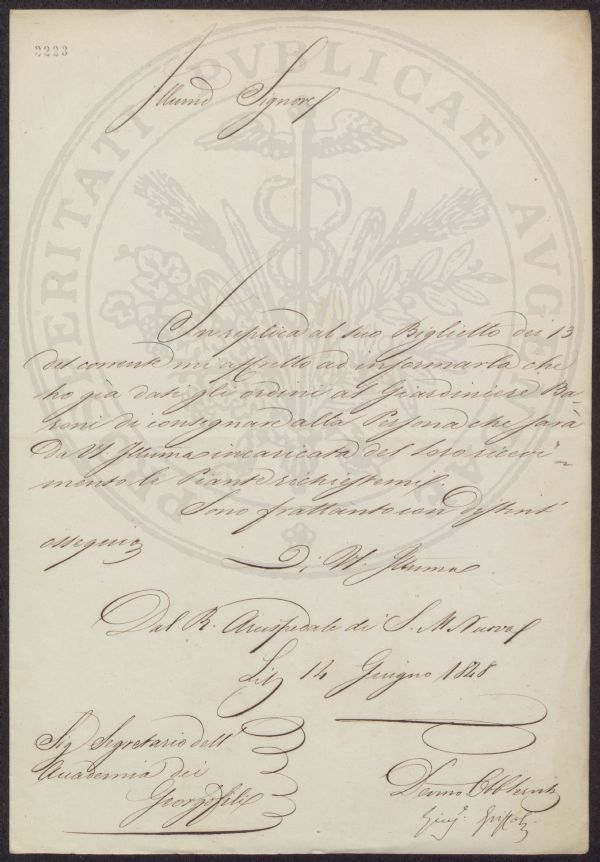 2223
Illumo Signore
In replica al suo Biglietto dei 13
del corrente mi affretto ad informarla che
ho già dati gli ordini al Giardiniere Ba=
roni di consegnare alla Persona che sarà
da VS Illuma incaricata del loro ricevi=
mento le Piante richiestemi.
Sono frattanto con distint
ossequio
Di VS. Illuma
Dal R. Arcispedale di S. M Nuova
Li 14 Giugno 1848
Sig Segretario dell'
Accademia dei
Georgofili
Devmo Obb Servit
PROSPERITATI PVBLICAE AVGENDAE